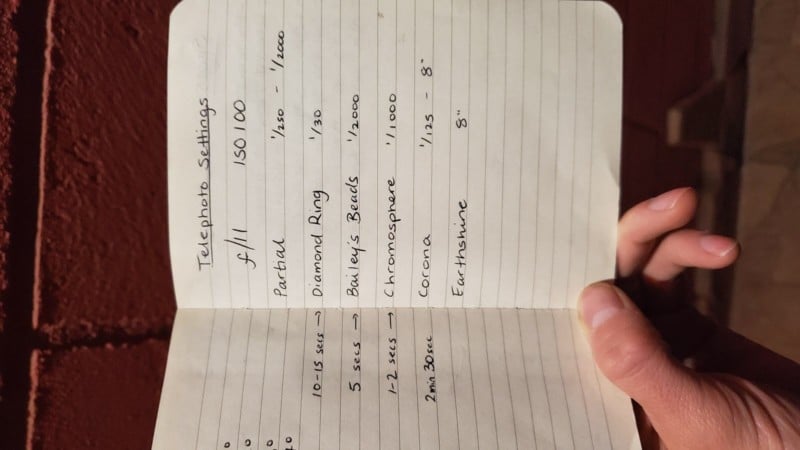 Telephoto Settings
f/11 ISO 100
Partial 1/250 - 1/2000
10-15 secs → Diamond Ring 1/30
5 secs → Bailey's Beads 1/2000
1-2 secs → Chromosphere 1/1000
2min 30sec Corona 1/125 - 8"
Earthshine 8"